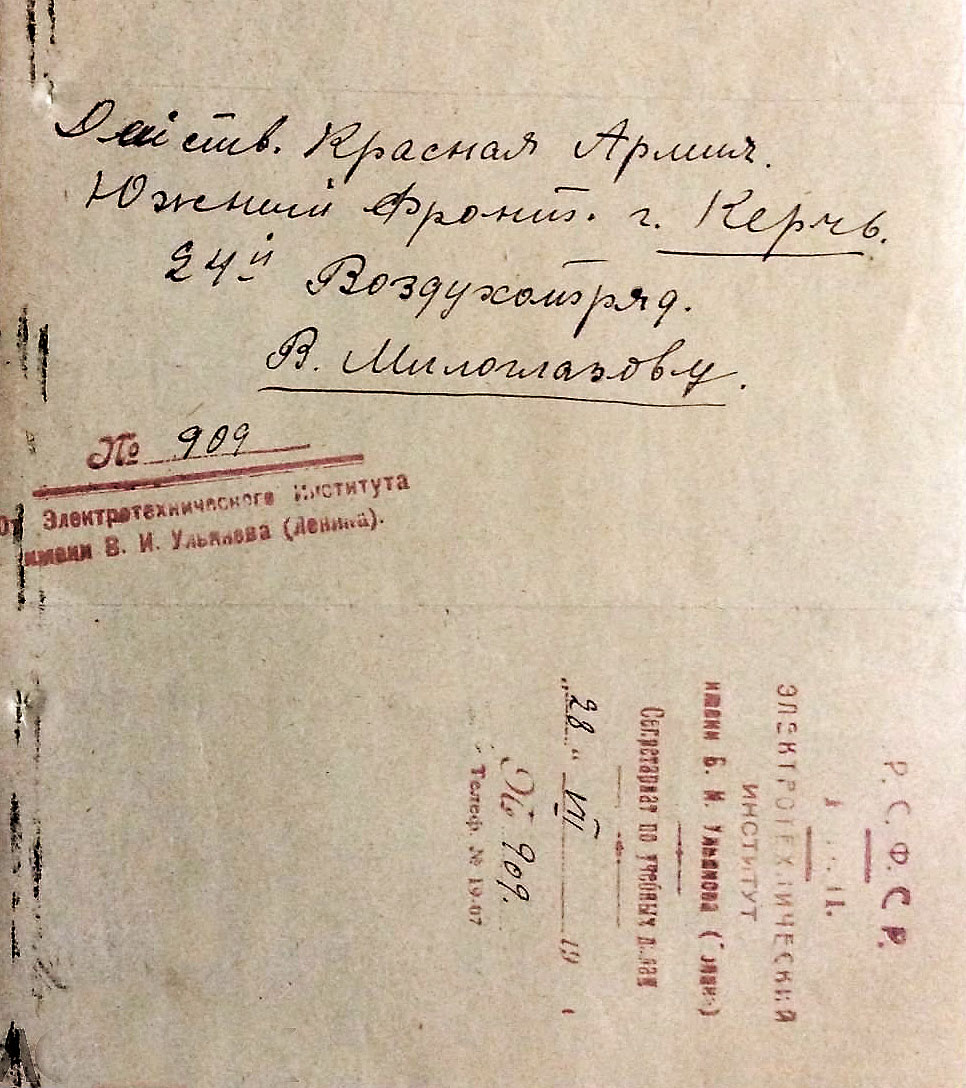 Действ. Красная Армия.
Южный Фронт. г. Керчь.
24й Воздухотряд.
В. Милоглазову.
№ 909
От Электротехнического Института
имени В. И. Ульянова (Ленина).
Р. С. Ф. С. Р.
ЭЛЕКТРОТЕХНИЧЕСКИЙ
ИНСТИТУТ
имени В. И. Ульянова
Секретариат по учебных делам
„28“ VII 19
№ 909.
Телеф. № 19-07